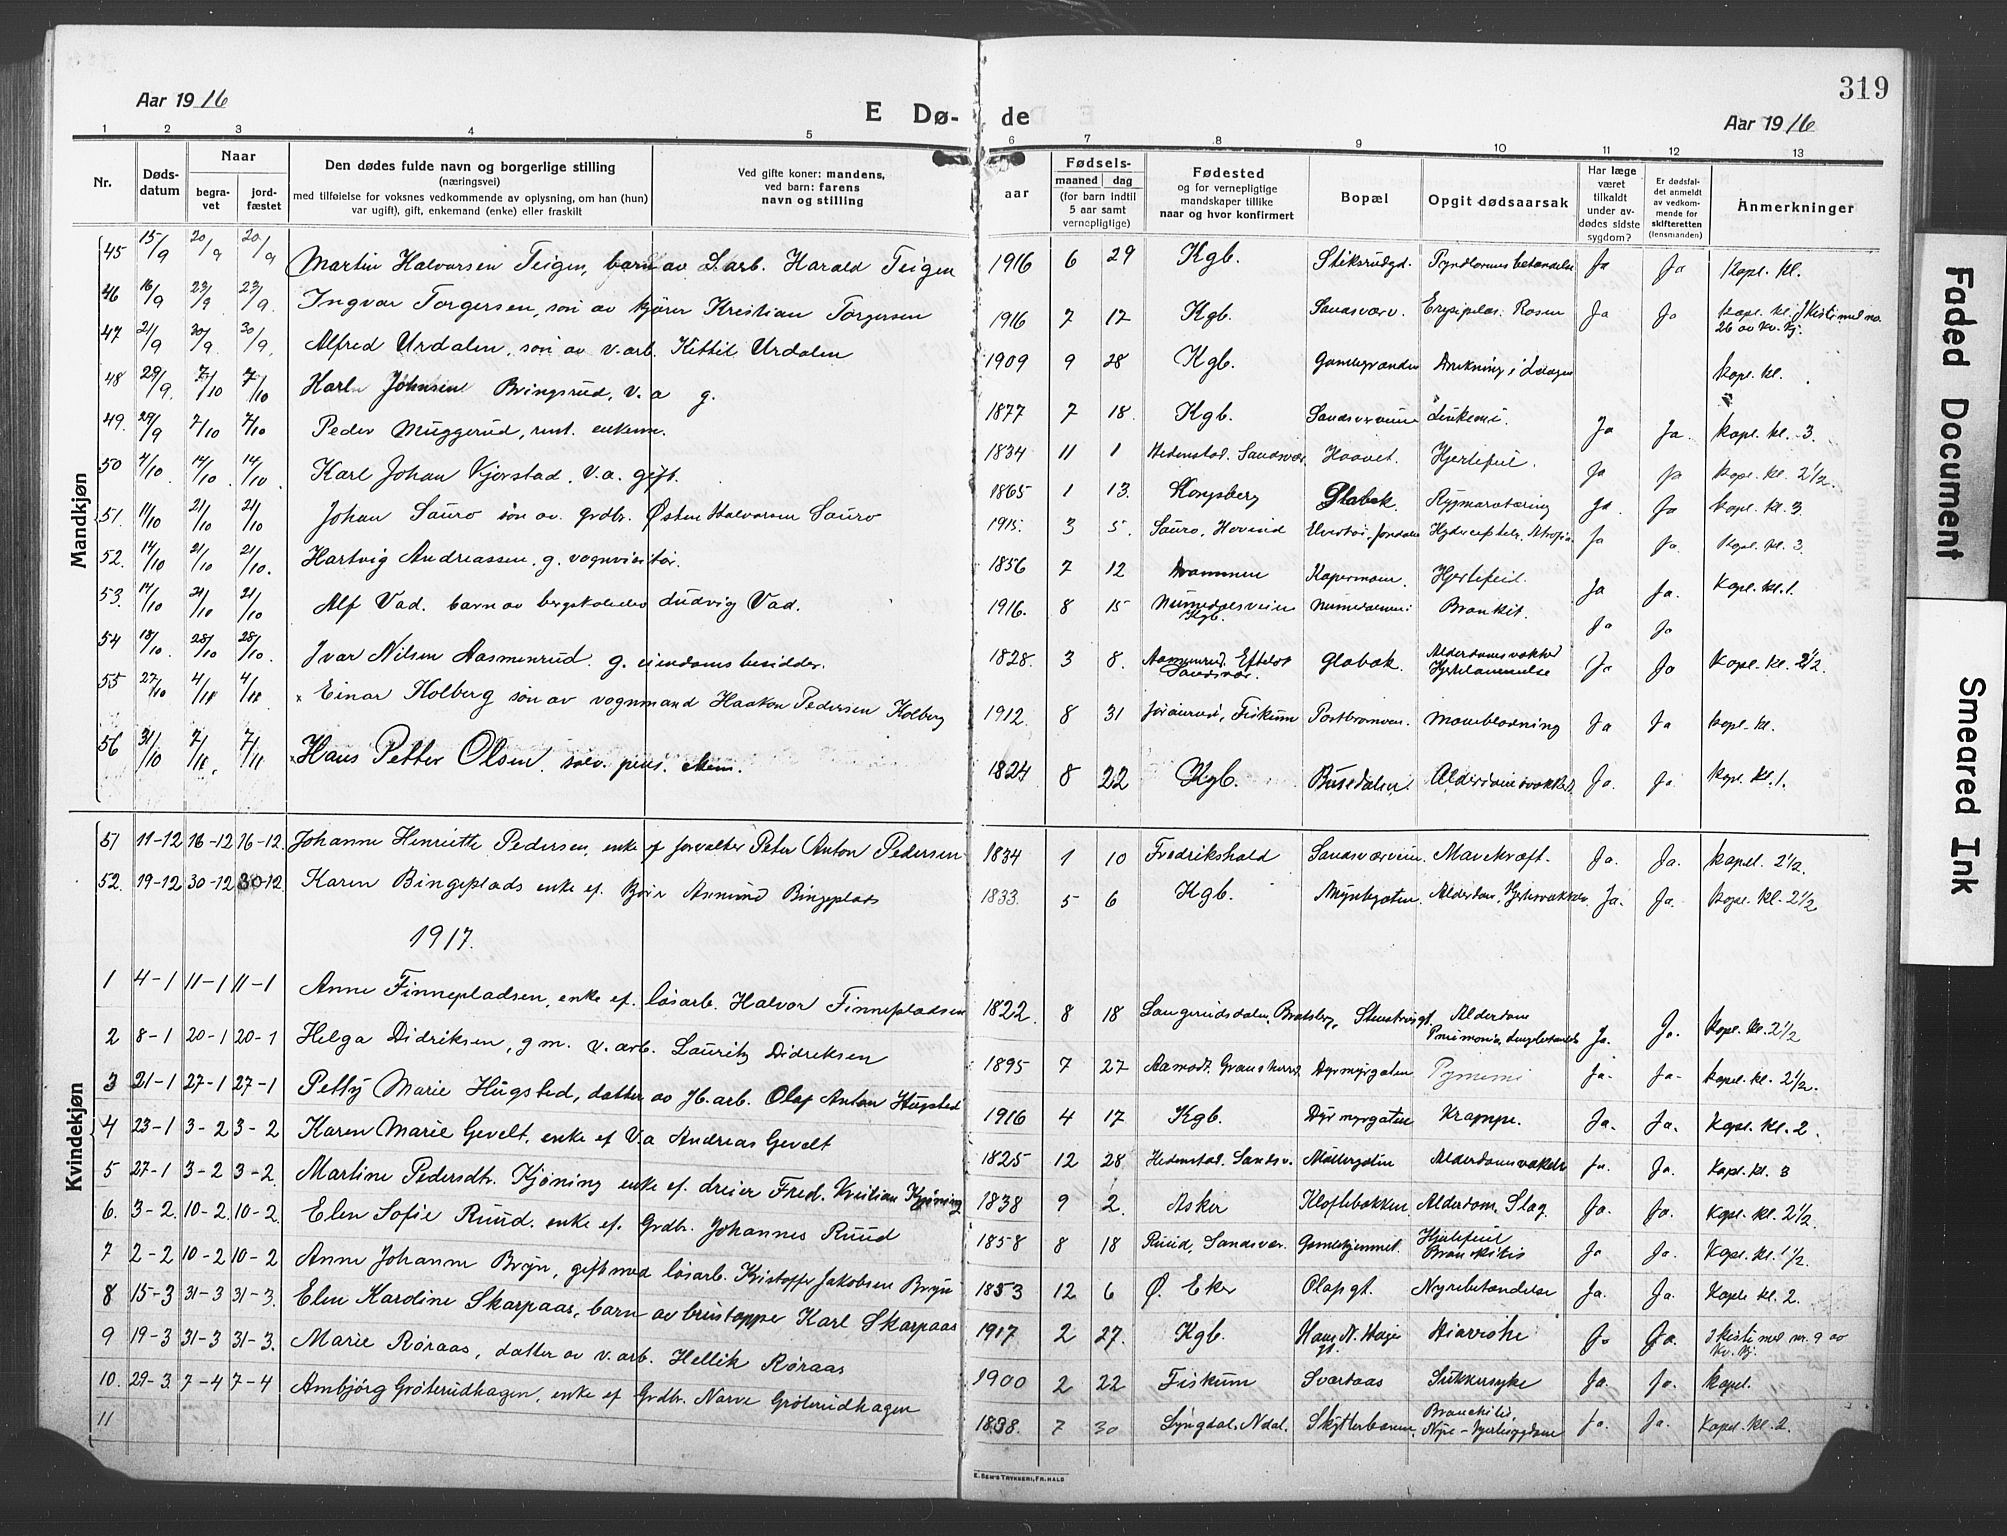 319
Aar 1916
E Dø- de
Aar 1916
1 2 3 4 5 6 7 8 9 10 11 12 13
Nr.
Døds-
datum
Naar
begra-
vet
jord-
fæstet
Den dødes fulde navn og borgerlige stilling
(næringsvei)
med tilføielse for voksnes vedkommende av oplysning, om han (hun)
var ugift), gift, enkemand (enke) eller fraskilt
Ved gifte koner: mandens,
ved barn: farens
navn og stilling
aar
Fødsels-
maaned dag
(for barn indtil
5 aar samt
vernepligtige)
Fødested
og for vernepligtige
mandskaper tillike
naar og hvor konfirmert
Bopæl
Opgit dødsaarsak
Har læge
været
tilkaldt
under av-
dødes sidste
sygdom?
Er dødsfal-
det anmeldt
av vedkom-
mende for
skifteretten
(lensmanden)
Anmerkninger
Mandkjøn
45 15/9 20/9 20/9 Martin Halvorsen Teigen, barn av S.arb. Harald Teigen 1916 6 29 Kgb. Ja Ja Kapel. kl.
46 16/9 23/9 23/9 Ingvar Torgersen, søn av kjører Kristian Torgersen 1916 7 17 Kgb. Sandsværv. Erysipelas. Rosen Ja Ja Kapel. kl. I kiste med no.
26 av Kv. kj.
47 21/9 30/9 30/9 Alfred Urdalen, søn av v.arb. Kittil Urdalen 1909 9 28 Kgb. Drukning i Laagen kapel. kl.
48 29/9 7/10 7/10 Karl Johnsen Bringsrud, v.a g. 1877 7 18 Kgb. Sandsværveien Leukemi. Ja Ja. kapel. kl. 3
49. 29/9 7/10 7/10 Peder Muggerud, rent. enkem. 1834 11 1 Hedenstad, Sandsvær. Haavet. Hjertefeil. Ja Ja kapel. kl. 2½.
50 4/10 14/10 14/10 Karl Johan Kjørstad, v.a. gift. 1865 1 13. Kongsberg Glabak. Rygmarvtæring Ja Ja kapel. kl. 3
51. 14/10 21/10 21/10 Johan Sauro søn av grdbr. Østen Halvorsen Sauro 1915. 3 5. Sauro, Hovind Ja Ja. Kapel. kl. 3.
52. 14/10 21/10 21/10. Hartvig Andreassen. g. vognvisitør. 1856 7 12 Drammen Kapermoen. Hjertefeil. Ja Ja. Kapel. kl. 1.
53. 17/10 21/10 21/10 Alf Vad. barn av bergskoleelev Ludvig Vad. 1916. 8 15 Numedalsveien
Kgb. Numedalsvei: Bronkit. Ja Ja
54 18/10 28/10 28/10. Ivar Nilsen Aasmenrud. g. eiendomsbesidder. 1828. 3 8. Aasmenrud. Efteløt
Sandsvær. Glabak. Alderdomsvakhed
Hjertelammelse Ja Ja Kapel. kl. 2½.
55 27/10 4/11 4/11 × Einar Kolberg søn av vognmand Haakon Pedersen Kolberg 1912. 8 31 Fiskum Maveblødning Ja Ja kapel. kl.
56 31/10 7/11. 7/11 × Hans Petter Olsen. sølv. pens. ekem. 1824 8 22 Kgb. Bussedalen. Alderdomsvakhed. Ja. Ja. Kapel. kl. 1.
Kvindekjøn
51 11-12 16-12 16-12. Johanne Henriette Pedersen, enke ef forvalter Peter Anton Pedersen 1834 1 10 Fredrikshald Sandsværveien. Mavekræft. Ja. Ja. kapel. 2½.
52. 19-12 30-12 30-12. Karen Bingeplads enke ef. Amund Bingeplads 1833. 5 6 Kgb. Myntgaten. Alderdom, Hjertesvakkelse Ja. Ja. kapel. kl. 2½
1917.
1 4-1 11-1 11-1 Anne Finnepladsen, enke ef. løsarb. Halvor Finnepladsen 1822. 8 18 Alderdom Ja. Ja. kapel. kl. 2½
2 8-1 20-1 20-1 Helga Didriksen, g m. v.arb. Lauritz Didriksen 1895 7 27 Aamodt, Gransherred Dyrmyrgaten Ja. Ja- kapel. kl. 2½.
3 21-1 27-1 27-1 Petty Marie Hugsted, datter av Jb.arb. Olaf Anton Hugsted 1916 4 17 Kgb. Dyrmyrgaten Krampe. Ja. Ja. Kapel. kl. 2.
4 23-1 3-2 3-2 Karen Marie Gevelt, enke ef v.a Andreas Gevelt 1825 12 28 Hedenstad. Sandsv. Møllergaten Alderdomsvakels. Ja. Ja. Kapl. kl. 3
5 27-1 3-2 3-2. Martine Pedersdtr. Kjøning enke ef. dreier Fred. Kristian Kjøning 1838 9 2. Asker Kloftebakken Alderdom, Slag. Ja. Ja. Kapel. kl. 2½.
6. 3-2 10-2 10-2. Elen Sofie Ruud. enke ef. Grdbr. Johannes Ruud 1858 8 18 Ruud, Sandsvær. Gamlehjemmet. Hjertefeil
Bronkitis Ja Ja. Kapel. kl. 1½.
7 2-2 10-2 10-2 Anne Johanne Bryn, gift med løsarb. Kristoffer Jakobsen Bryn 1853 12 6 Ø. Eker Olafsgt. Nyrebetændelse Ja. Ja. Kapel. kl. 2.
8 15-3 31-3 31-3. Elen Kardine Skarpaas, barn av brustøpper Karl Skarpaas 1917 2 27. Kgb. Hans N. Hages
gt. Diarrohe Ja Ja. I kiste med nr. 9 av
Kv. kj.
9 19-3 31-3 31-3. Marie Røraas, datter av v.arb. Hellik Røraas 1900 2 22 Fiskum Svartaas Sukkersyke Ja Ja. kapel.
10. 29-3 7-4 7-4 Ambjørg Grøterudhagen, enke ef Grdbr. Narve Grøterudhagen 1838. 7 30 Lyngdal. Ndal. Skytterbanen. Bronchitis
Nyre-Hjertesygdom Ja. Ja. Kapel. kl. 2.
11
E. SEM'S TRYKKERI, FR.HALD
Faded Document
Smeared Ink